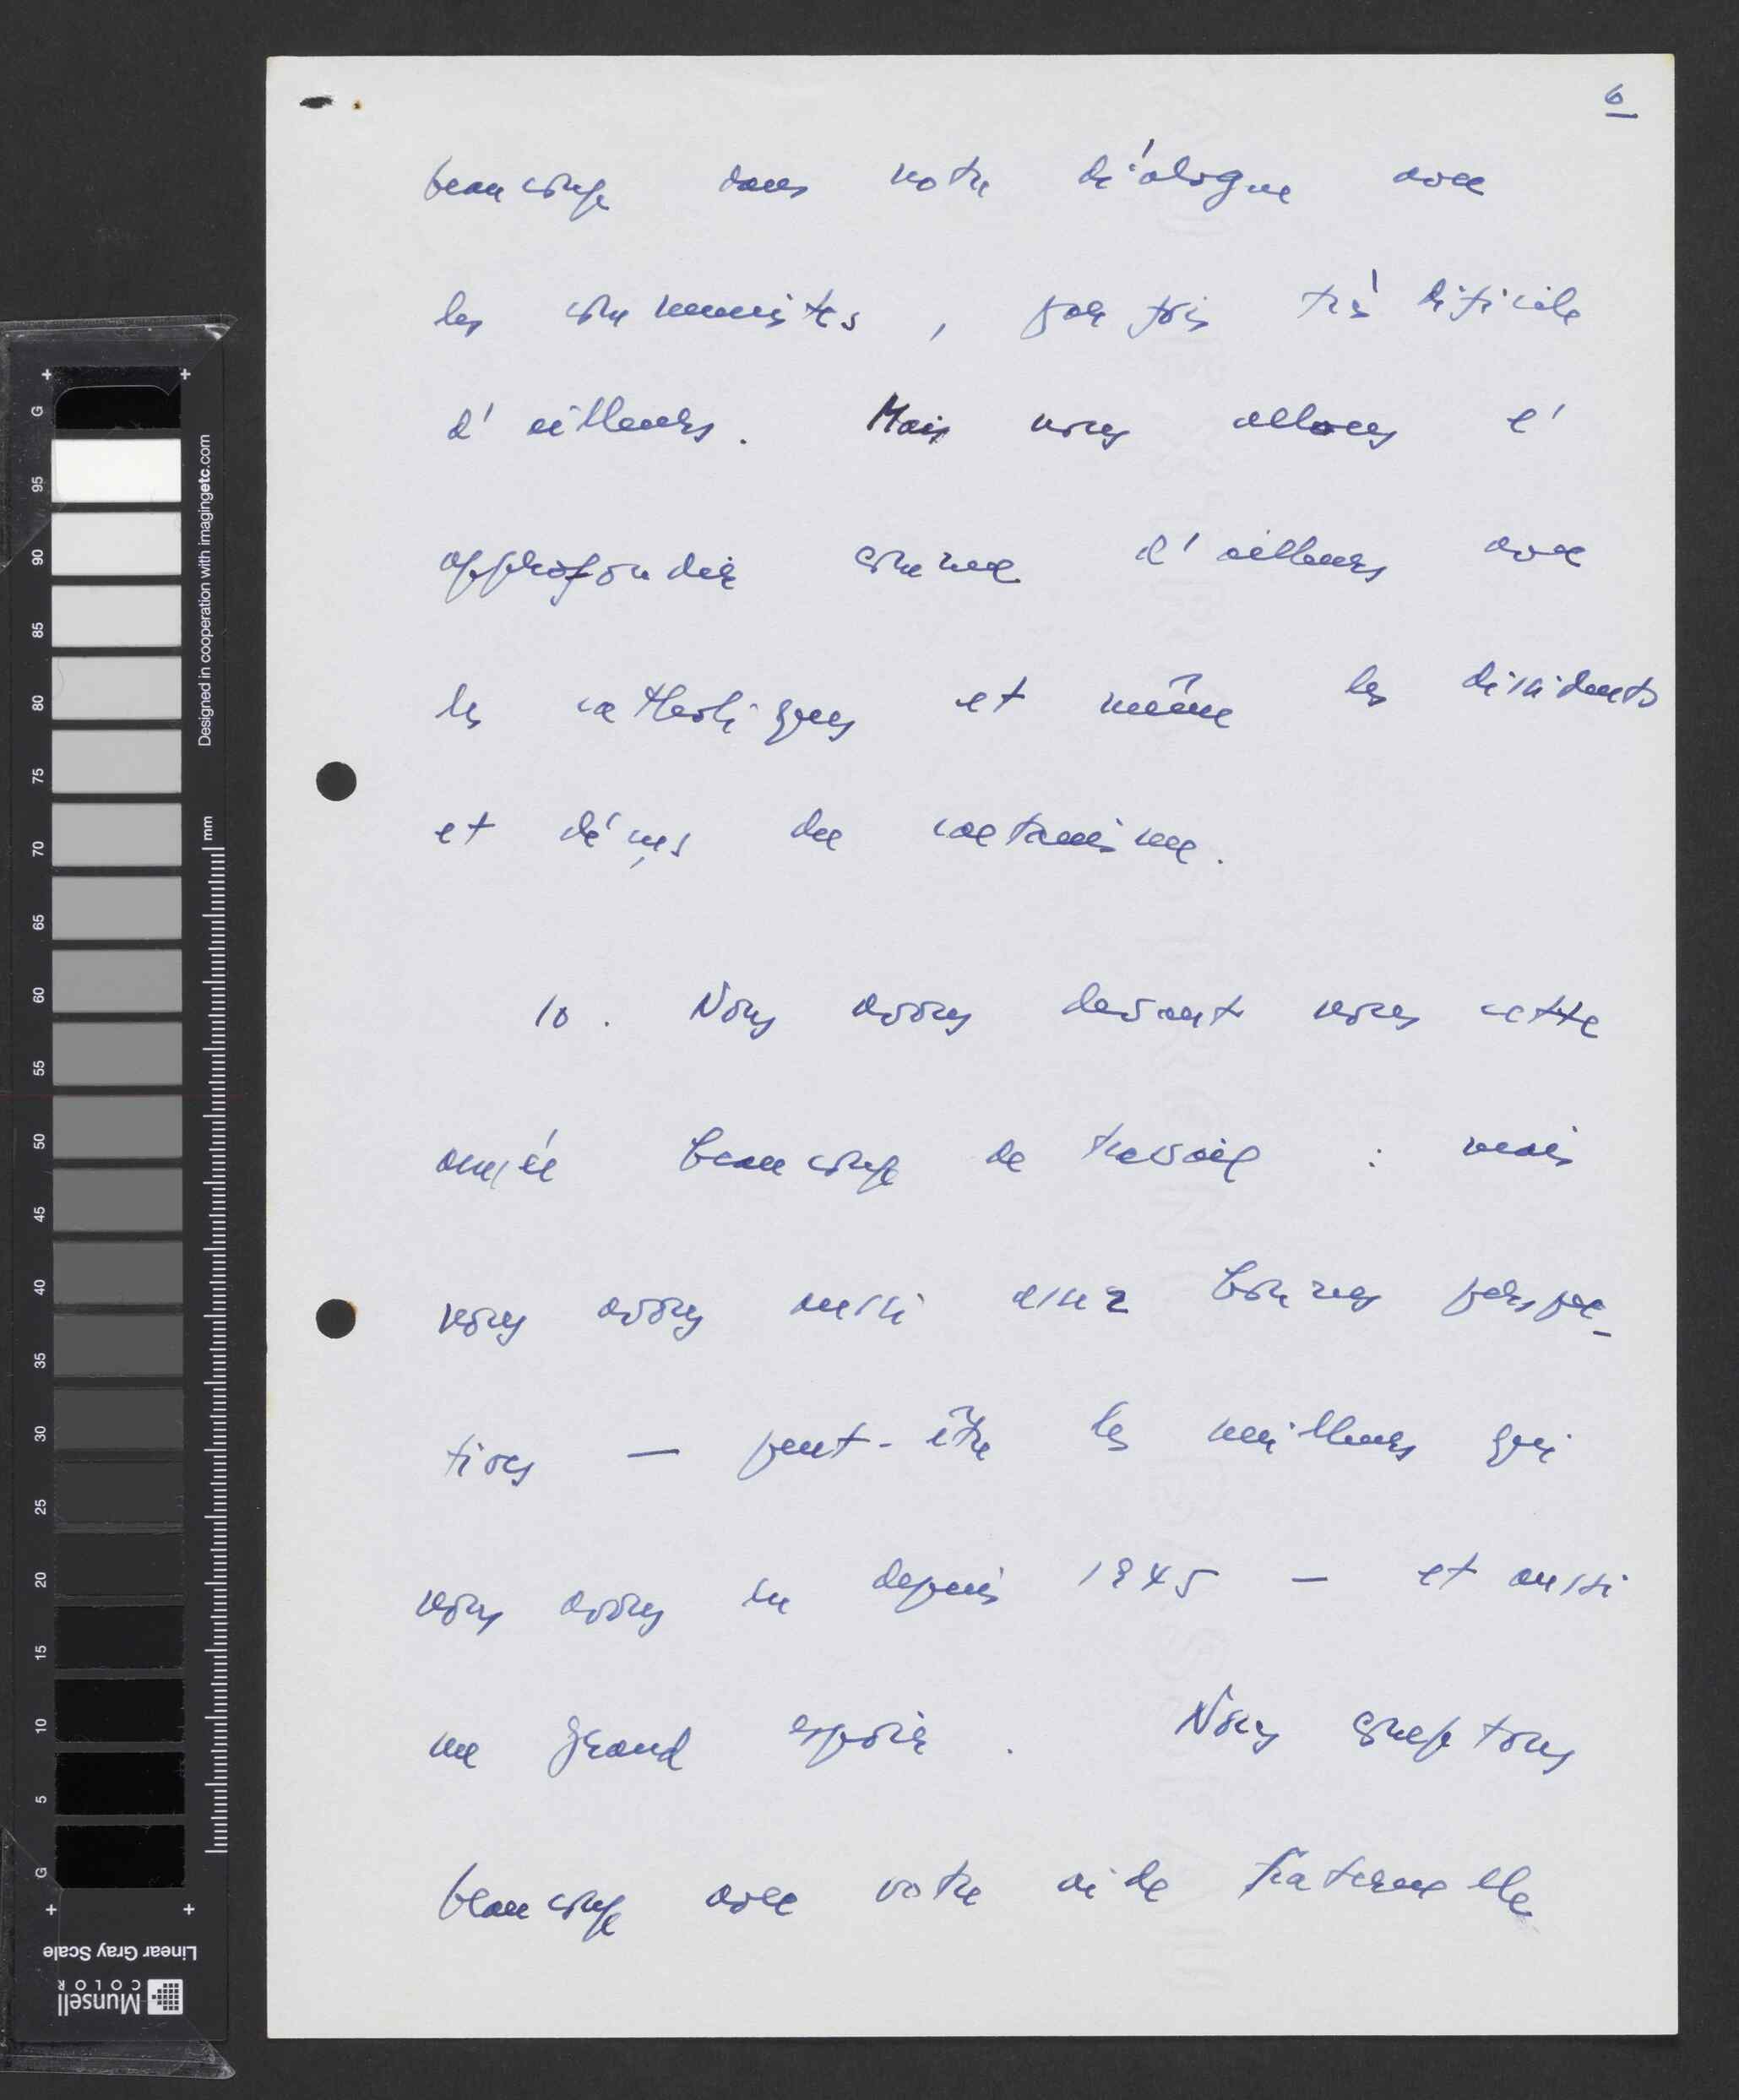 6
beaucoup dans notre diálogue avec
les communistes, parfois très dificile
d'ailleurs. Mais nous allons l'
approfondir comme d'ailleurs avec
les catholiques et même les disidents
et déçus du caetanisme.
10. Nous avons devant nous cette
année beaucoup de travail : mais
nous avons aussi assez bonnes perspec-
tives — peut-être les meilleures que
nous avons eu depuis 1945 — et aussi
un grand espoir. Nous comptons
beaucoup avec votre aide fraternelle
G
95
90
85
80
75
70
65
60
55
50
45
40
35
30
25
20
15
10
5
G
Designed in cooperation with imagingetc.com
mm
Linear Gray Scale
Munsell
COLOR